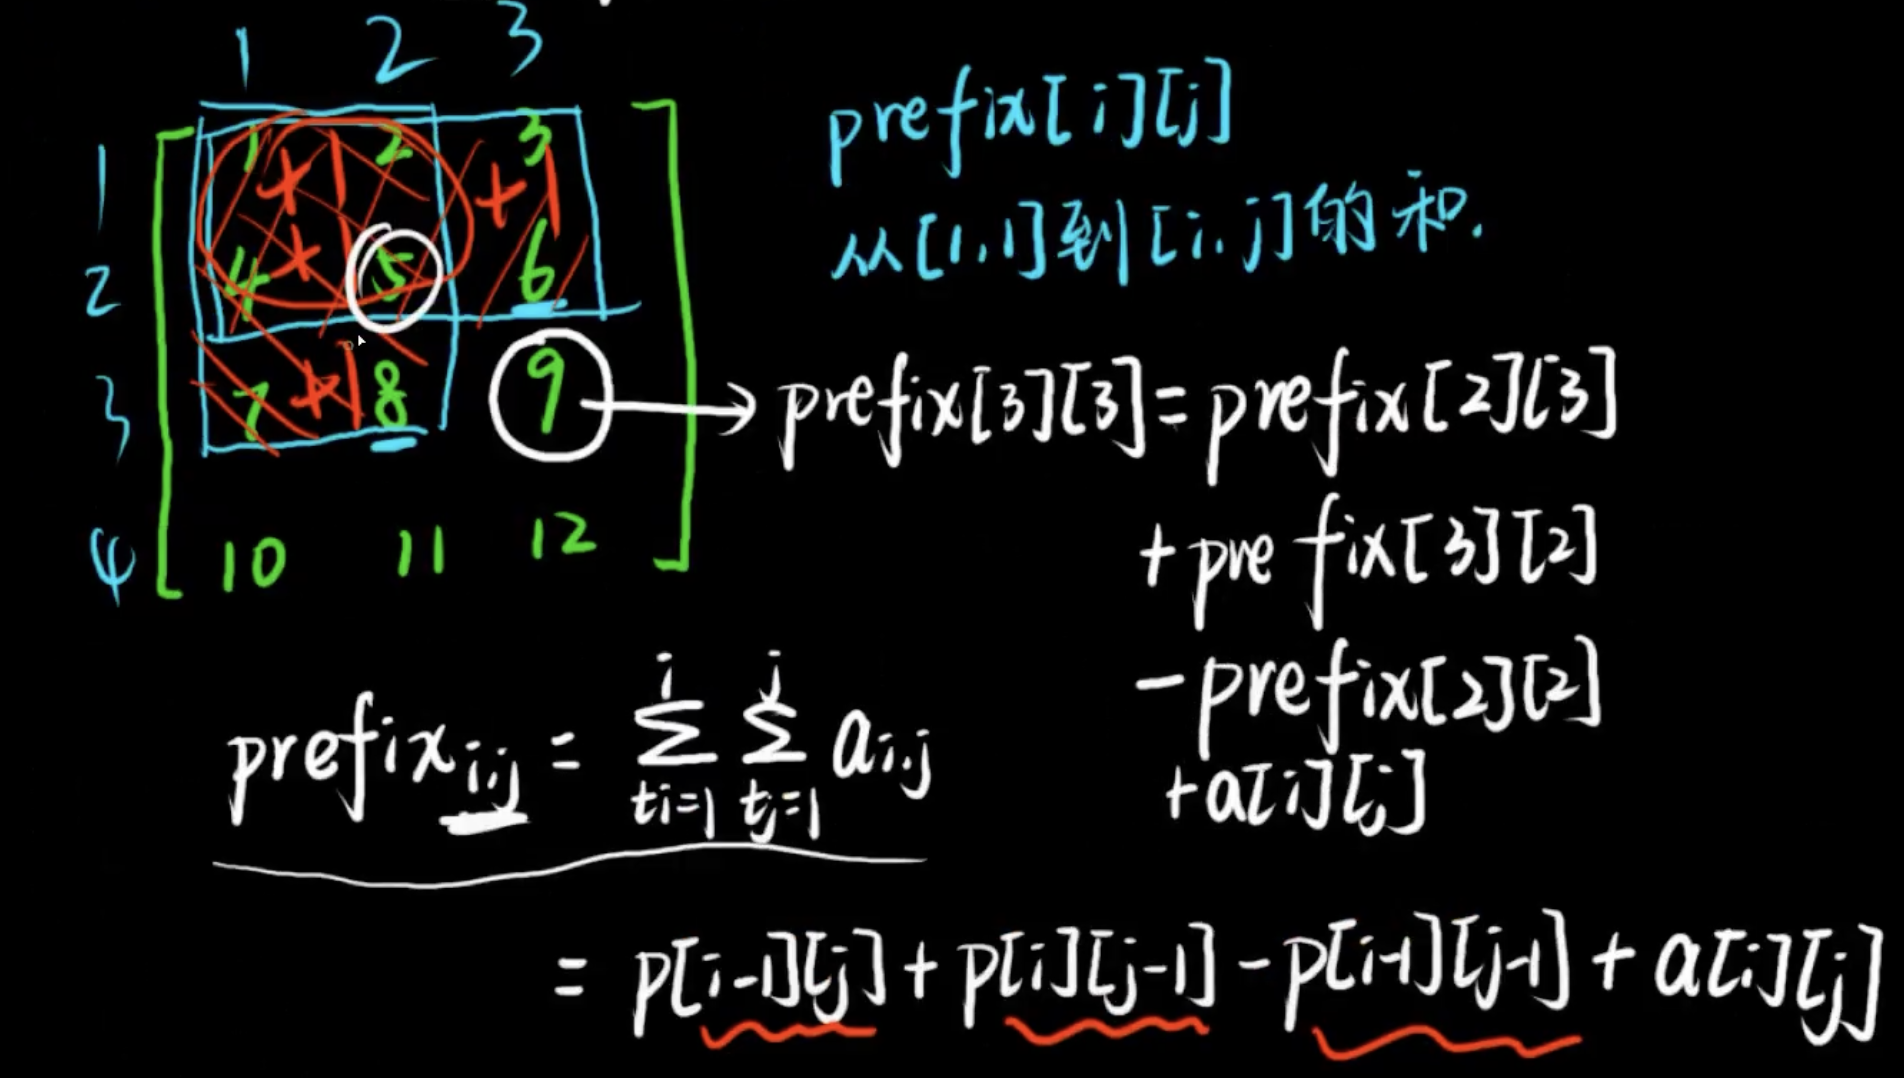 1 2 3
1 1 2 3
+1 +1
2 4 5 6
+1
3 7 8 9
+1
4 10 11 12
prefix[i][j]
从[1,1]到[i,j]的和.
prefix[3][3]=prefix[2][3]
+prefix[3][2]
-prefix[2][2]
+a[i][j]
prefix i,j = i ∑ ti=1 j ∑ tj=1 a i,j
= p[i-1][j] + p[i][j-1] - p[i-1][j-1] + a[i][j]